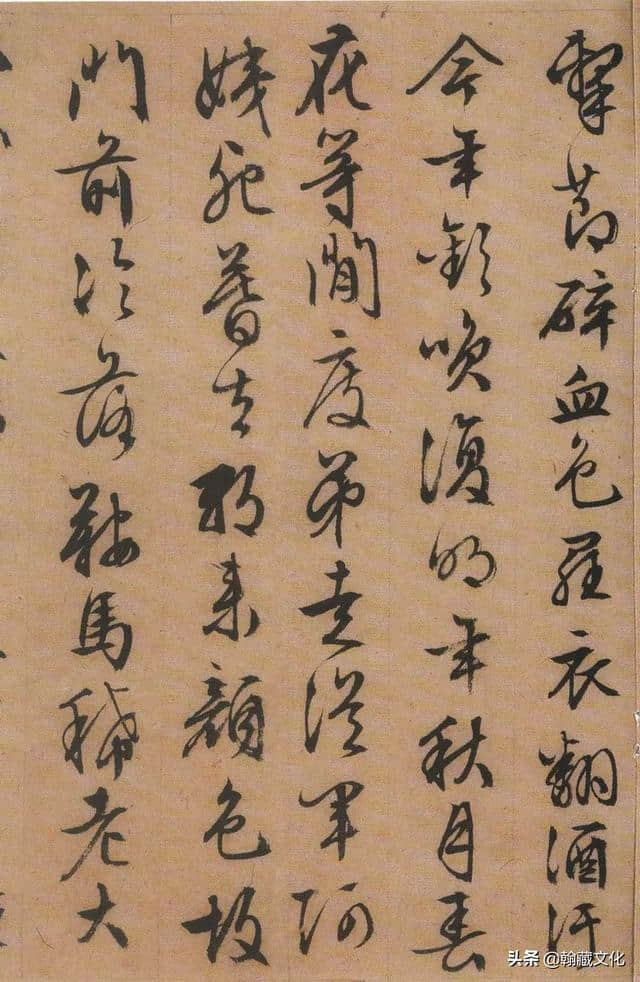 擊節碎血色羅衣翻酒汙
今年歡咲復明年秋月春
花等閒度弟走從軍阿
姨死暮去朝來顏色故
門前冷落鞍馬稀老大
头条 @翰藏文化